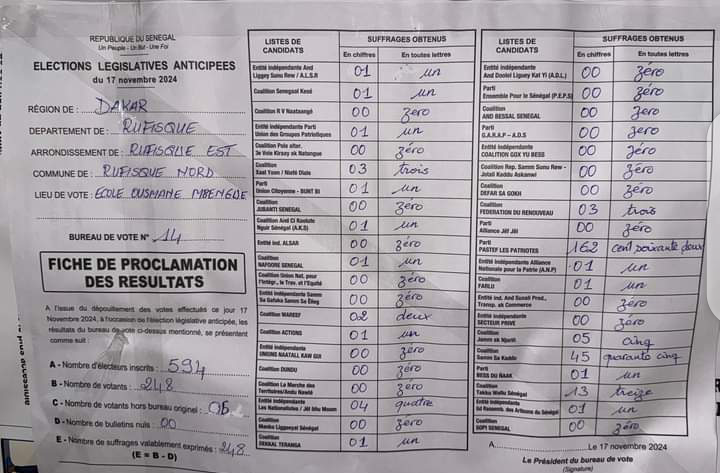 REPUBLIQUE DU SENEGAL
Un Peuple - Un But - Une Foi
ELECTIONS LEGISLATIVES ANTICIPEES
du 17 novembre 2024
RÉGION DE : DAKAR
DEPARTEMENT DE : RUFISQUE
ARRONDISSEMENT DE : RUFISQUE EST
COMMUNE DE : RUFISQUE NORD
LIEU DE VOTE : ECOLE OUSMANE MBENGUE
BUREAU DE VOTE N° 14
FICHE DE PROCLAMATION
DES RESULTATS
A l'issue du dépouillement des votes effectués ce jour 17
Novembre 2024, à l'occasion de l'élection législative anticipée, les
résultats du bureau de vote ci-dessus mentionné, se présentent
comme suit :
A - Nombre d'électeurs inscrits : 594
B - Nombre de votants : 248
C - Nombre de votants hors bureau originel : 05
D - Nombre de bulletins nuls : 00
E - Nombre de suffrages valablement exprimés : 248
(E = B - D)
LISTES DE CANDIDATS SUFFRAGES OBTENUS
En chiffres En toutes lettres
Entité indépendante And Liggey Sunu Rew / A.L.S.R 01 un
Coalition Senegaal Kesé 01 un
Coalition R V Naataangé 00 zéro
Entité indépendante Parti Union des Groupes Patriotiques 01 un
Coalition Pole alter. 3e Voie Kiraay ak Natangue 00 zéro
Coalition Xaal Yoon / Niaté Diale 03 trois
Parti Union Citoyenne - BUNT BI 01 un
Coalition JUBANTI SENEGAL 00 zéro
Coalition And Ci Koolute Nguir Sénégal (A.K.S) 01 un
Entité ind. ALSAR 00 zéro
Coalition NAFOORE SENEGAL 01 un
Coalition Union Nat. pour l'Intégr., le Trav. et l'Equité 00 zéro
Entité indépendante Samm Sa Gafaka Samm Sa Ëlleg 00 zéro
Coalition WAREEF 02 deux
Coalition ACTIONS 01 un
Entité indépendante UNIONS NAATALL KAW GUI 00 zéro
Coalition DUNDU 00 zéro
Coalition La Marche des Territoires/Andu Nawlé 00 zéro
Entité indépendante Les Nationalistes / Jël liñu Moom 04 quatre
Coalition Manko Liggeeyal Sénégal 00 zéro
Coalition SEKKAL TERANGA 01 un
LISTES DE CANDIDATS SUFFRAGES OBTENUS
En chiffres En toutes lettres
Entité indépendante And Doolel Liguey Kat Yi (A.D.L.) 00 zéro
Parti Ensemble Pour le Sénégal (P.E.P.S) 00 zéro
Coalition AND BESSAL SENEGAL 00 zéro
Parti G.A.R.A.P - A.D.S 00 zéro
Entité indépendante COALITION GOX YU BESS 00 zéro
Coalition Rep. Samm Sunu Rew - Jotali Kaddu Askanwi 00 zéro
Coalition DEFAR SA GOKH 00 zéro
Coalition FEDERATION DU RENOUVEAU 03 trois
Parti Alliance Jëf Jël 00 zéro
Parti PASTEF LES PATRIOTES 162 cent soixante deux
Entité indépendante Alliance Nationale pour la Patrie (A.N.P) 01 un
Coalition FARLU 01 un
Entité ind. And Suxali Prod., Transp. ak Commerce 00 zéro
Entité indépendante SECTEUR PRIVE 00 zéro
Coalition Jamm ak Njariñ 05 cinq
Coalition Samm Sa Kaddu 45 quarante cinq
Parti BESS DU ÑAAK 01 un
Coalition Takku Wallu Sénégal 13 treize
Entité indépendante Sd Rassemb. des Artisans du Sénégal 01 un
Coalition SOPI SENEGAL 00 zéro
A Le 17 novembre 2024
Le Président du bureau de vote
(Signature)